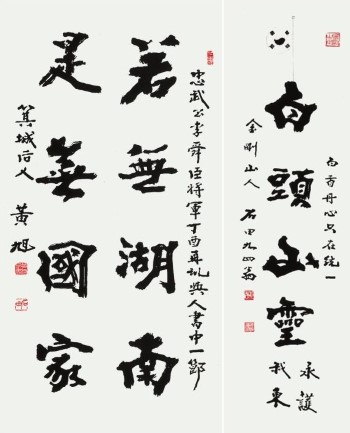 白首丹心只在統一
白頭山靈
護
我東
金剛山人 石田九四翁
忠武公李舜臣將軍丁酉再亂與人書中一節
若無湖南
是無國家
箕城后人 黃旭